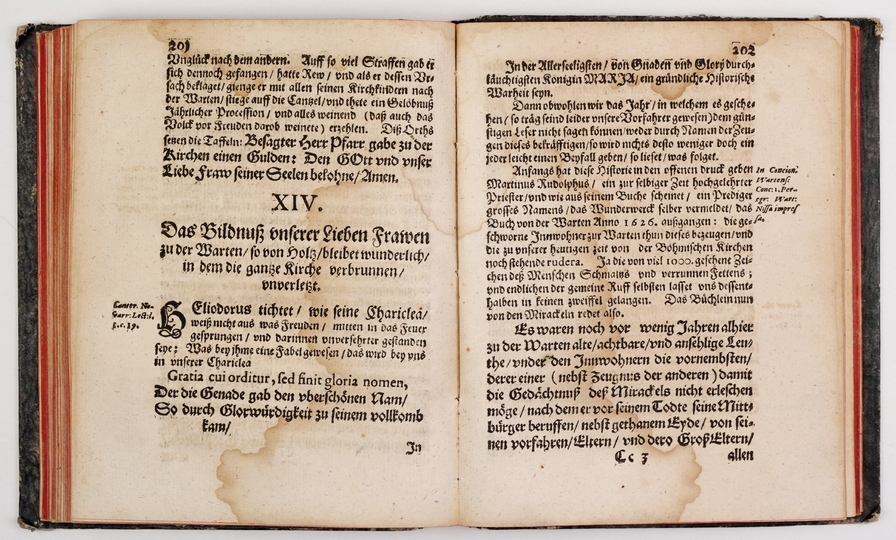 201
Vnglück nach dem andern. Auff so viel Straffen gab er
sich dennoch gefangen / hatte Rew / vnd als er dessen Vr-
sach beklaget / gienge er mit allen seinen Kirchkindern nach
der Warten / stiege auff die Cantzel / vnd thete ein Gelöbnuß
Jährlicher Procession / vnd alles weinend (daß auch das
Volck vor Freuden darob weinete) erzehlen. Diß Orths
setzen die Taffeln: Besagter Herr Pfarr gabe zu der
Kirchen einen Gulden: Den GOtt vnd vnser
Liebe Fraw seiner Seelen belohne / Amen.
XIV.
Das Bildnuß vnserer Lieben Frawen
zu der Warten / so von Holtz / bleibet wunderlich /
in dem die gantze Kirche verbrunnen /
vnverletzt.
HEliodorus tichtet / wie seine Chariclea /
weiß nicht aus was Freuden / mitten in das Feuer
gesprungen / vnd darinnen vnversehrter gestanden
seye; Was bey jhme eine Fabel gewesen / das wird bey vns
in vnserer Chariclea
Gratia cui orditur, sed finit gloria nomen,
Der die Genade gab den vberschönen Nam /
So durch Glorwürdigkeit zu seinem vollkomb
kam /
In
202
In der Allerseeligsten / von Gnaden vnd Glory durch-
läuchtigsten Königin MARJA / ein gründliche Historische
Warheit seyn.
Dann obwohlen wir das Jahr / in welchem es gesche-
hen (so träg seind leider vnsere Vorfahrer gewesen) dem gün-
stigen Leser nicht sagen können / weder durch Namen der Zeu-
gen dieses bekräfftigen / so wird nichts desto weniger doch ein
jeder leicht einen Beyfall geben / so lieset / was folget.
Anfangs hat diese Historie in den offenen druck geben
Martinus Rudolphus / ein zur selbiger Zeit hochgelehrter
Priester / vnd wie aus seinem Buche scheinet / ein Prediger
grosses Namens / das Wunderwerck selber vermeldet / das
Buch von der Warten Anno 1626. außgangen: die ge-
schworne Innwohner zur Warten thun dieses bezeugen / vnd
die zu vnserer heutigen zeit von der Böhmischen Kirchen
noch stehende rudera. Ja die von viel 1000. gesehene Zei-
chen deß Menschen Schmaltzs vnd verrunnen Fettens;
vnd endlichen der gemeine Ruff selbsten lasset vns dessent-
halben in keinen zweiffel gelangen. Das Büchlein nun
von den Mirackeln redet also.
Es waren noch vor wenig Jahren alhier
zu der Warten alte / achtbare / vnd ansehlige Leu-
the / vnder den Innwohnern die vornembsten /
derer einer (nebst Zeugnus der anderen) damit
die Gedächtnuß deß Mirackels nicht erleschen
möge / nach dem er vor seinem Todte seine Mitt-
bürger beruffen / nebst gethanem Eyde / von sei-
nen vorfahren / Eltern / vnd dero GroßEltern /
Cc 3 allen